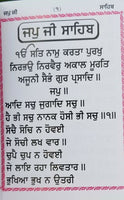 ਜਪੁ ਜੀ (੧) ਸਾਹਿਬ
ਜਪੁ ਜੀ ਸਾਹਿਬ
ੴ ਸਤਿ ਨਾਮੁ ਕਰਤਾ ਪੁਰਖੁ
ਨਿਰਭਉ ਨਿਰਵੈਰੁ ਅਕਾਲ ਮੂਰਤਿ
ਅਜੂਨੀ ਸੈਭੰ ਗੁਰ ਪ੍ਰਸਾਦਿ ॥
ਜਪੁ ॥
ਆਦਿ ਸਚੁ ਜੁਗਾਦਿ ਸਚੁ ॥
ਹੈ ਭੀ ਸਚੁ ਨਾਨਕ ਹੋਸੀ ਭੀ ਸਚੁ ॥੧॥
ਸੋਚੈ ਸੋਚਿ ਨ ਹੋਵਈ
ਜੇ ਸੋਚੀ ਲਖ ਵਾਰ ॥
ਚੁਪੈ ਚੁਪ ਨ ਹੋਵਈ
ਜੇ ਲਾਇ ਰਹਾ ਲਿਵਤਾਰ ॥
ਭੁਖਿਆ ਭੁਖ ਨ ਉਤਰੀ